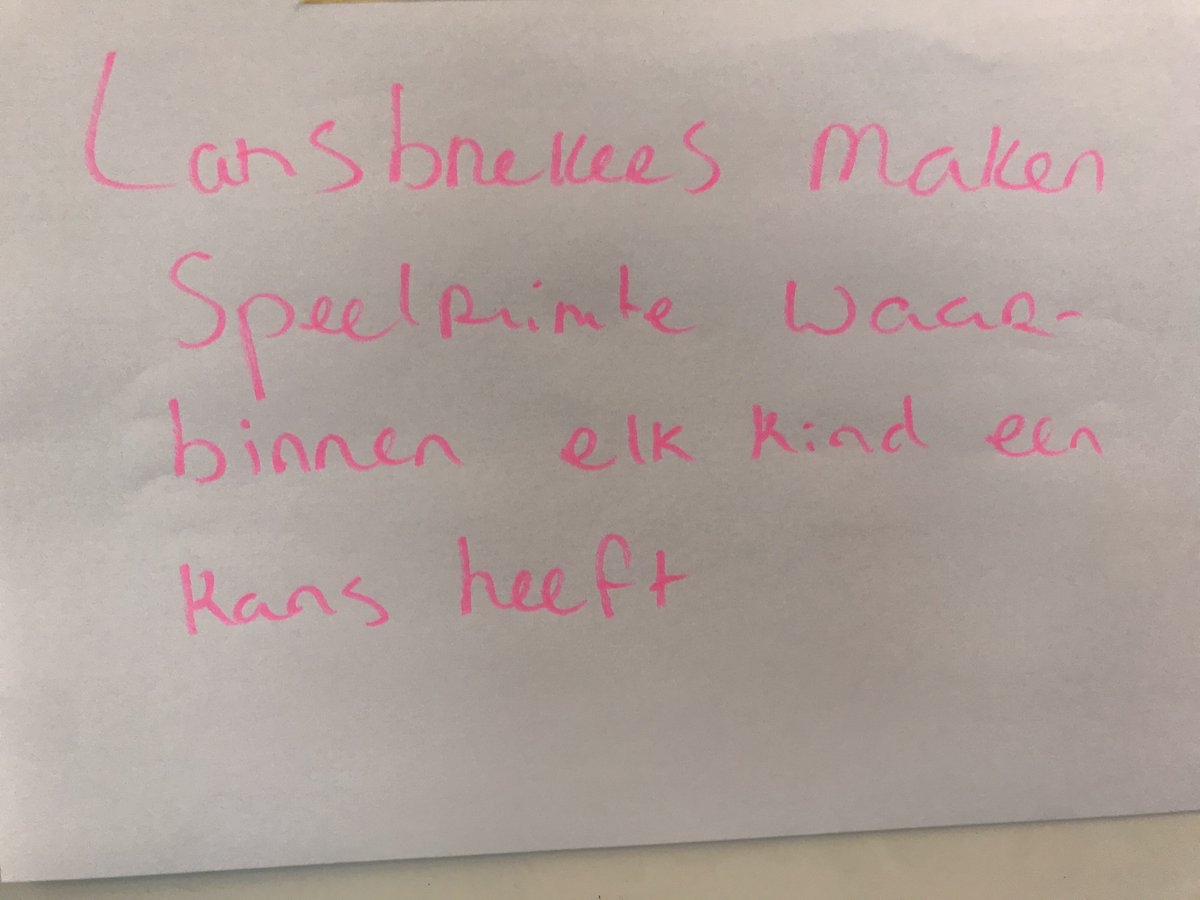 Lansbrekers maken
Speelruimte waar-
binnen elk kind een
kans heeft